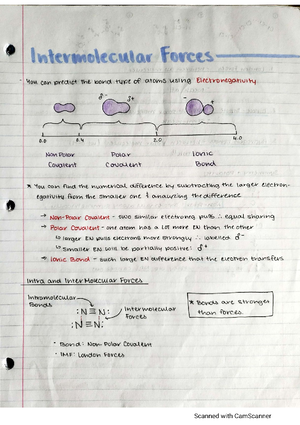 Intermolecular Forces
You can predict the bond type of atoms using Electronegativity
δ- δ+
0.0 0.4 2.0 4.0
Non Polar Polar Ionic
Covalent Covalent Bond
* You can find the numerical difference by subtracting the larger electron-
egativity from the smaller one & analyzing the difference
→ Non-Polar Covalent - such similar electroneg pulls ∴ equal sharing
→ Polar Covalent - one atom has a lot more EN than the other
↳ larger EN pulls electrons more strongly ∴ labelled δ-
↳ Smaller EN will be partially positive: δ+
→ Ionic Bond - such large EN difference that the electron transfers
Intra and InterMolecular Forces
Intramolecular
Bonds
:N≡N:
:N≡N:
Intermolecular
Forces
* Bonds are stronger
than forces.
• Bond: Non Polar Covalent
• IMF: London Forces
Scanned with CamScanner